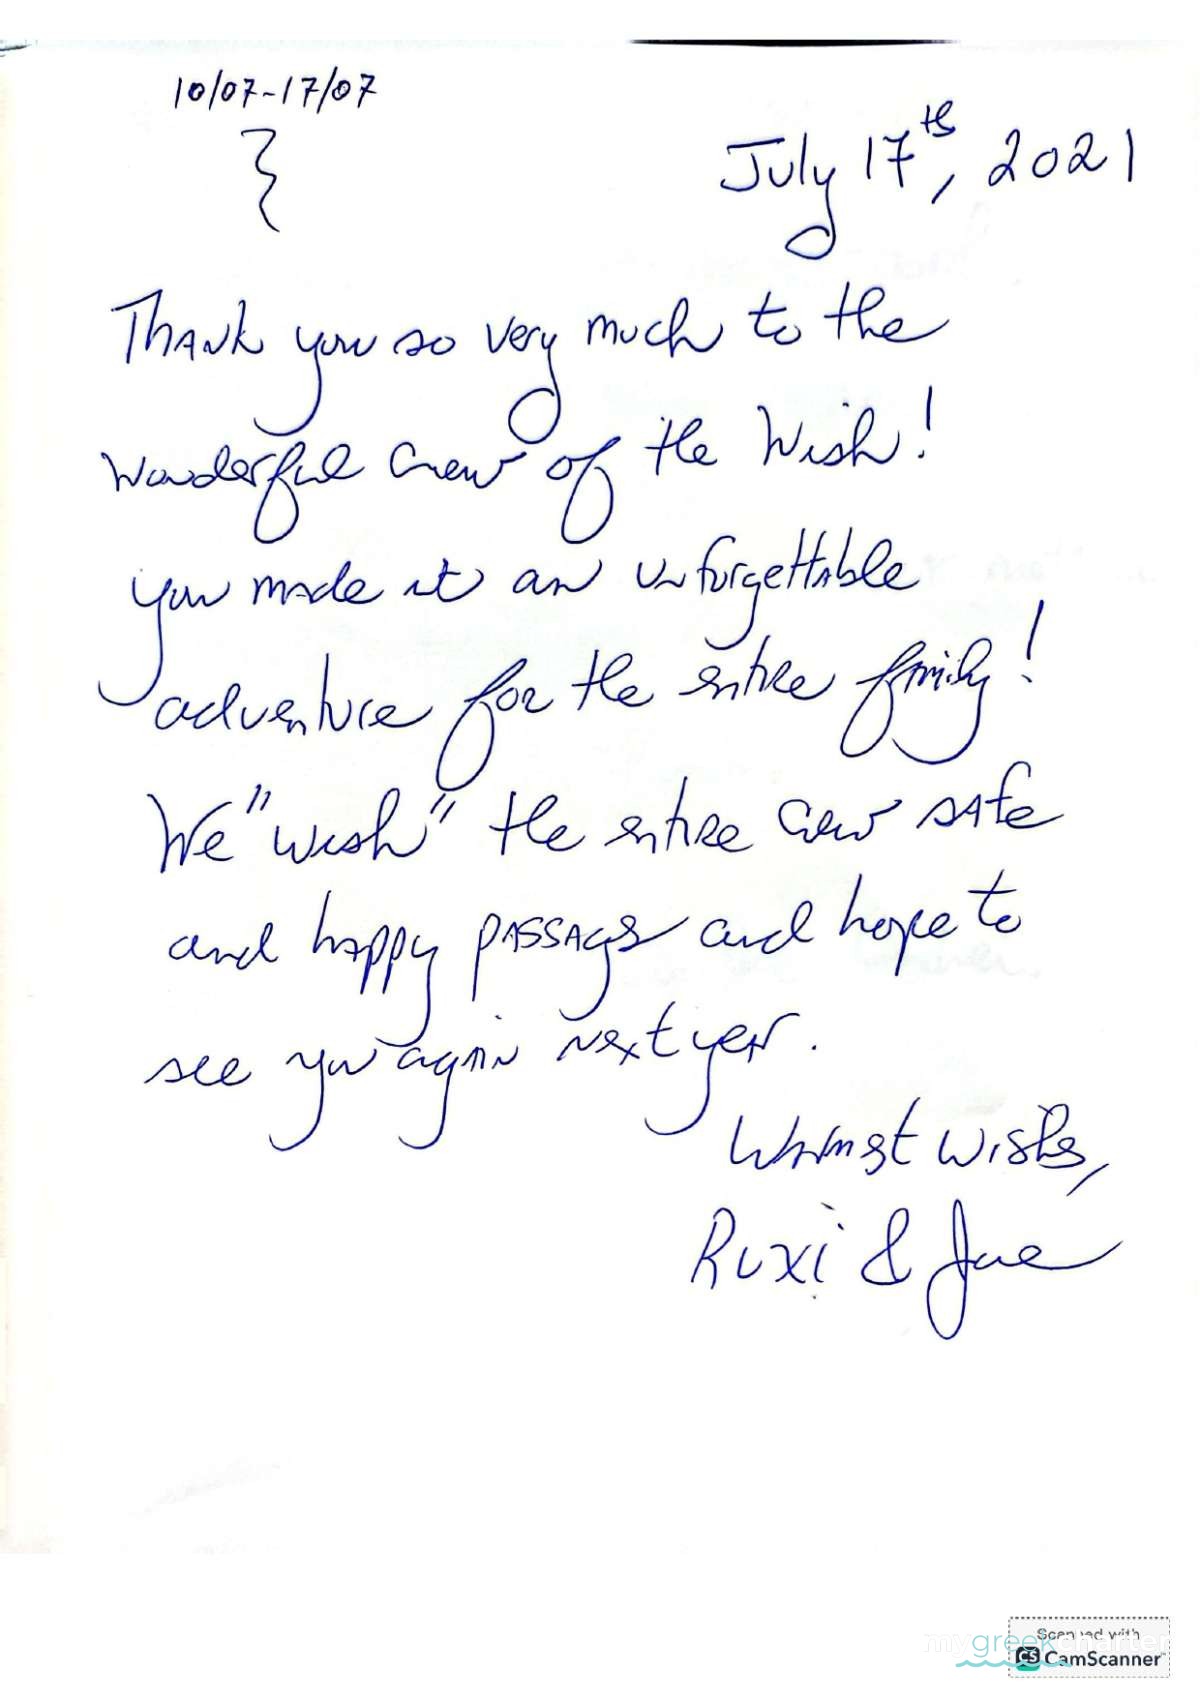 10/07-17/07
July 17th, 2021
Thank you so very much to the
wonderful crew of the Wish!
you made it an unforgettable
adventure for the entire family!
We "wish" the entire crew safe
and happy passages and hope to
see you again next year.
Warmest wishes,
Ruxi &
Scanned with
mygreekcharter
CS CamScanner